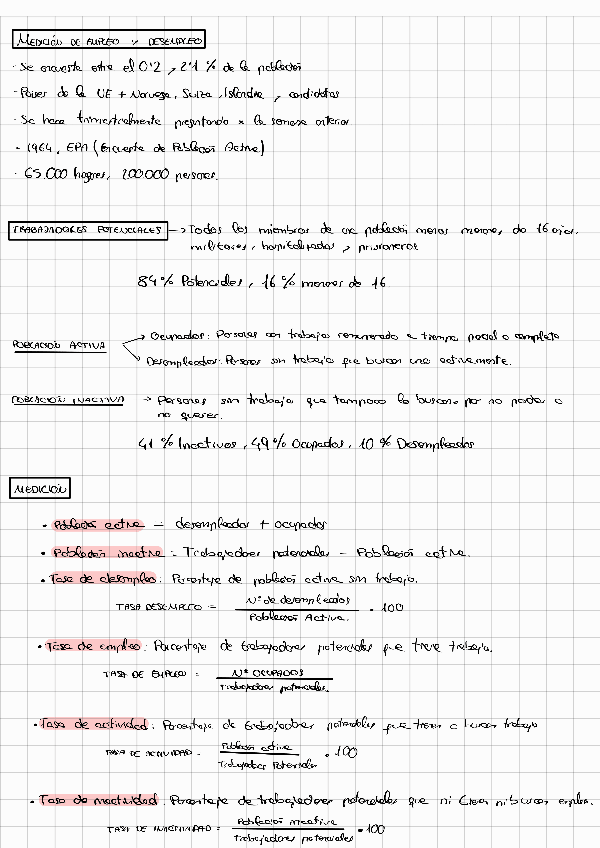 MEDICIÓN DE EMPLEO Y DESEMPLEO
· Se encuesta entre el 0'2 y 2'1 % de la población
· Países de la UE + Noruega, Suiza, Islandia y candidatos
· Se hace trimestralmente preguntando x la semana anterior
· 1964, EPA (Encuesta de Población Activa)
· 65.000 hogares, 200.000 personas.
TRABAJADORES POTENCIALES → Todos los miembros de una población menos menores de 16 años,
militares, hospitalizados y prisioneros
84% Potenciales, 16% menores de 16
POBLACIÓN ACTIVA
→ Ocupados: Personas con trabajo remunerado a tiempo parcial o completo
Desempleados: Personas sin trabajo que buscan uno activamente.
POBLACIÓN INACTIVA → Personas sin trabajo que tampoco lo buscan, por no poder o
no querer.
41% Inactivos, 49% Ocupados, 10% Desempleados
MEDICIÓN
• Población activa = desempleados + ocupados
• Población inactiva = Trabajadores potenciales - Población activa.
• Tasa de desempleo: Porcentaje de población activa sin trabajo.
TASA DESEMPLEO = Nº de desempleados / Población Activa. · 100
• Tasa de empleo: Porcentaje de trabajadores potenciales que tiene trabajo.
TASA DE EMPLEO = Nº OCUPADOS / Trabajadores potenciales.
• Tasa de actividad: Porcentaje de trabajadores potenciales que tienen o buscan trabajo
TASA DE ACTIVIDAD = Población activa / Trabajadores Potenciales · 100
• Tasa de inactividad: Porcentaje de trabajadores potenciales que ni tienen ni buscan empleo.
TASA DE INACTIVIDAD = Población inactiva / Trabajadores potenciales · 100